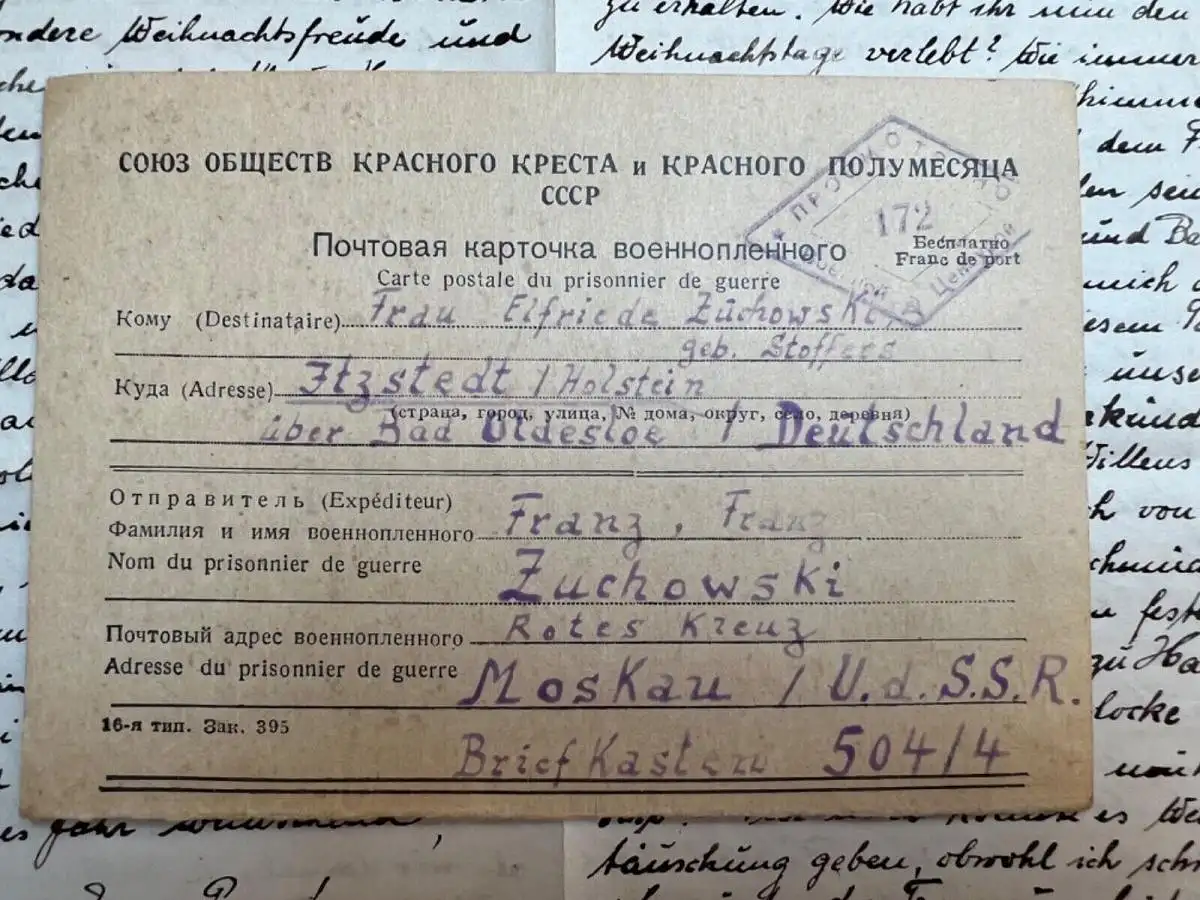 ondere Weihnachtsfreude und
zu erhalten. Wie habt ihr nun den
Weihnachtstage verlebt? Wie immer
СОЮЗ ОБЩЕСТВ КРАСНОГО КРЕСТА и КРАСНОГО ПОЛУМЕСЯЦА
СССР
172
Почтовая карточка военнопленного
Бесплатно
Carte postale du prisonnier de guerre
Franc de port
Кому (Destinataire) Frau Elfriede Zuchowski,
geb. Stoffers
Куда (Adresse) Itzstedt / Holstein
(страна, город, улица, № дома, округ, село, деревня)
über Bad Oldesloe / Deutschland
Отправитель (Expéditeur)
Фамилия и имя военнопленного Franz, Franz
Nom du prisonnier de guerre Zuchowski
Почтовый адрес военнопленного Rotes Kreuz
Adresse du prisonnier de guerre Moskau / U.d.S.S.R.
16-я тип. Зак. 395
Briefkasten 504/4
dem
und
von
zu
locke
es Jahr
täuschung geben, obwohl ich